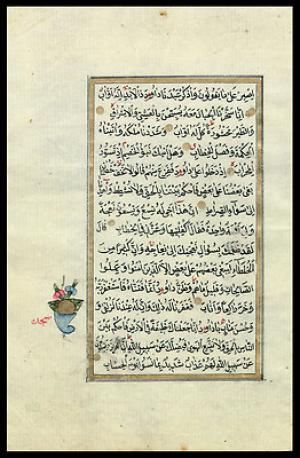 اصبر على ما يقولون واذكر عبدنا داود ذا الايد انه اواب
انا سخرنا الجبال معه يسبحن بالعشي والاشراق
والطير محشورة كل له اواب وشددنا ملكه واتيناه
الحكمة وفصل الخطاب وهل اتيك نبؤا الخصم اذ تسوروا
المحراب اذ دخلوا على داود ففزع منهم قالوا لا تخف خصمان
بغى بعضنا على بعض فاحكم بيننا بالحق ولا تشطط واهدنا
الى سواء الصراط ان هذا اخي له تسع وتسعون نعجة
ولي نعجة واحدة فقال اكفلنيها وعزني في الخطاب قال
لقد ظلمك بسؤال نعجتك الى نعاجه وان كثيرا من
الخلطاء ليبغي بعضهم على بعض الا الذين امنوا وعملوا
الصالحات وقليل ما هم وظن داود انما فتناه فاستغفر ربه
وخر راكعا واناب فغفرنا له ذلك وان له عندنا لزلفى
وحسن ماب يا داود انا جعلناك خليفة في الارض فاحكم بين
الناس بالحق ولا تتبع الهوى فيضلك عن سبيل الله ان الذين يضلون
عن سبيل الله لهم عذاب شديد بما نسوا يوم الحساب